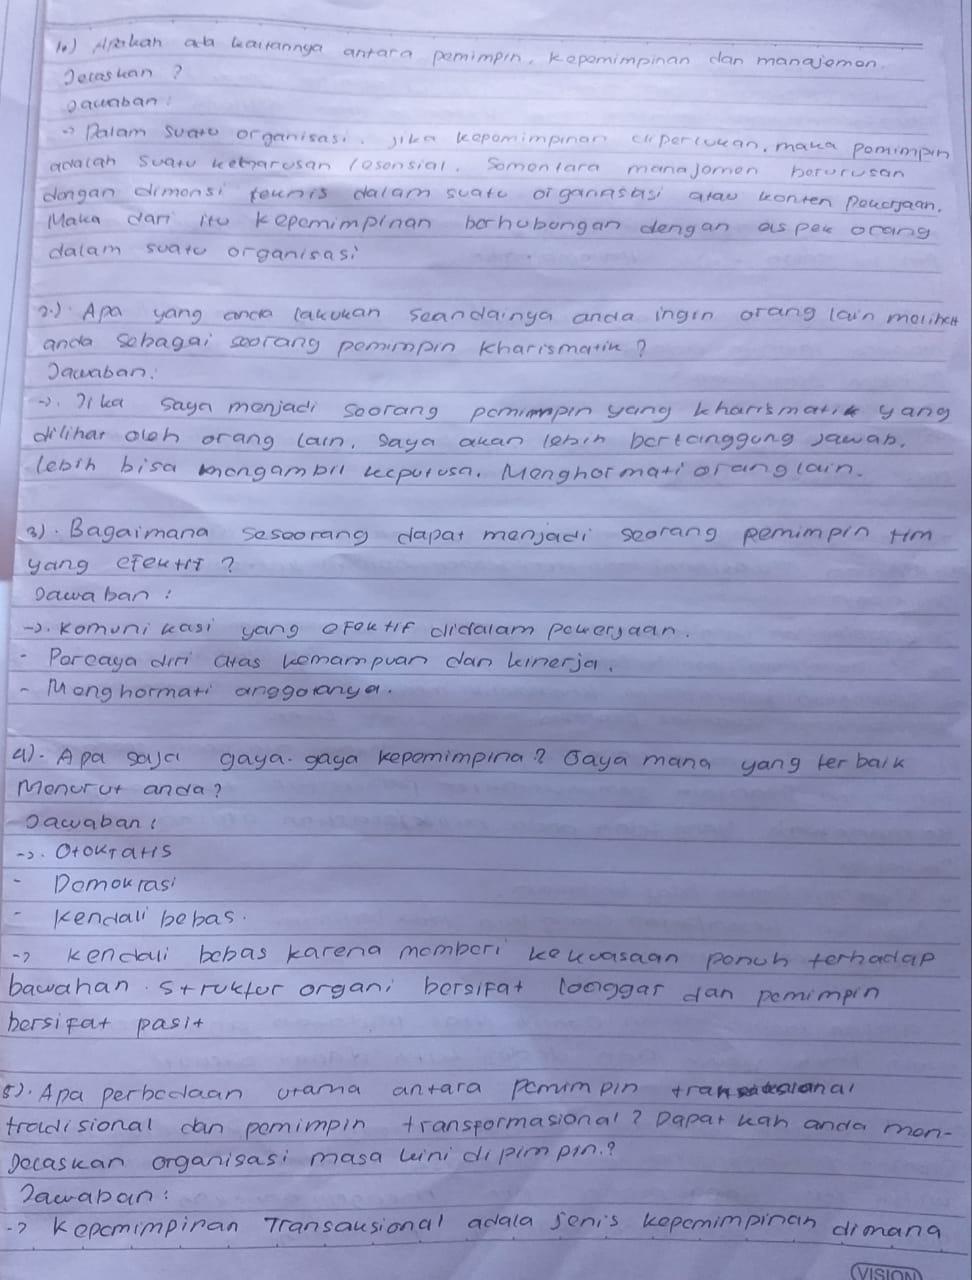 1.) Apakah ada kaitannya antara pemimpin, kepemimpinan dan manajemen.
Jelaskan ?
Jawaban :
-> Dalam suatu organisasi, jika kepemimpinan diperlukan, maka pemimpin
adalah suatu keharusan / esensial. Sementara manajemen berurusan
dengan dimensi teknis dalam suatu organasasi atau konten pekerjaan.
Maka dari itu kepemimpinan berhubungan dengan aspek orang
dalam suatu organisasi
2.). Apa yang anda lakukan seandainya anda ingin orang lain melihat
anda sebagai seorang pemimpin kharismatik ?
Jawaban :
->. Jika saya menjadi seorang pemimpin yang kharismatik yang
dilihat oleh orang lain, saya akan lebih bertanggung jawab,
lebih bisa mengambil keputusa. Menghormati orang lain.
3). Bagaimana seseorang dapat menjadi seorang pemimpin tim
yang efektif ?
Jawaban :
->. Komunikasi yang efektif didalam pekerjaan.
- Percaya diri atas kemampuan dan kinerja.
- Menghormati anggotanya.
4). Apa saja gaya-gaya kepemimpina? Gaya mana yang terbaik
Menurut anda?
Jawaban :
->. Otokratis
- Demokrasi
- Kendali bebas.
-> Kendali bebas karena memberi kekuasaan penuh terhadap
bawahan. Struktur organi bersifat longgar dan pemimpin
bersifat pasif
5). Apa perbedaan utama antara pemimpin
tradisional dan pemimpin transformasional? Dapatkah anda men-
Jelaskan organisasi masa kini di pimpin.?
Jawaban :
-> Kepemimpinan Transaksional adala jenis kepemimpinan dimana
VISION